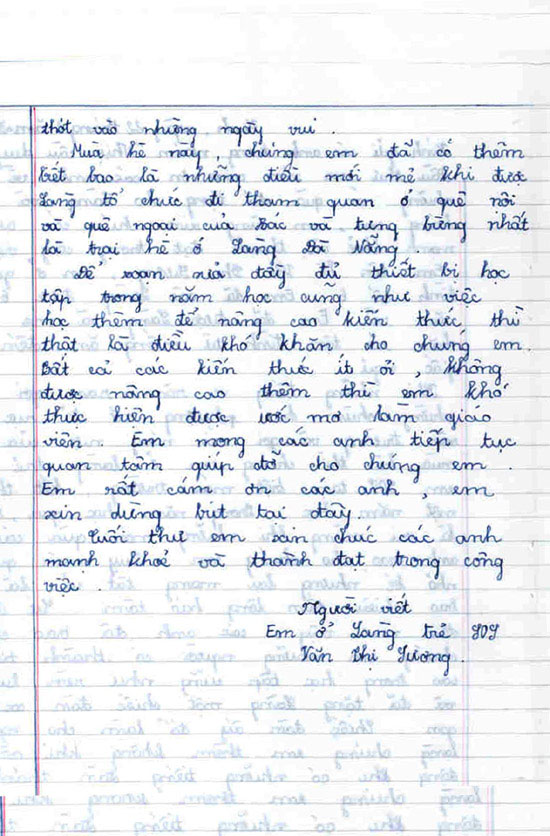 thốt vào những ngày vui.
Mùa hè này, chúng em đã có thêm
biết bao là những điều mới mẻ khi được
Làng tổ chức đi tham quan ở quê nội
và quê ngoại của Bác và tưng bừng nhất
là trại hè ở Làng Đà Nẵng
Để soạn sửa đầy đủ thiết bị học
tập trong năm học cũng như việc
học thêm để nâng cao kiến thức thì
thật là điều khó khăn cho chúng em.
Bất cả các kiến thức ít ỏi, không
được nâng cao thêm thì em khó
thực hiện được ước mơ làm giáo
viên. Em mong các anh tiếp tục
quan tâm giúp đỡ cho chúng em.
Em rất cám ơn các anh, em
xin dừng bút tại đây.
Cuối thư em xin chúc các anh
mạnh khoẻ và thành đạt trong công
việc.
Người viết
Em ở Làng trẻ SOS
Văn Thị Sương.